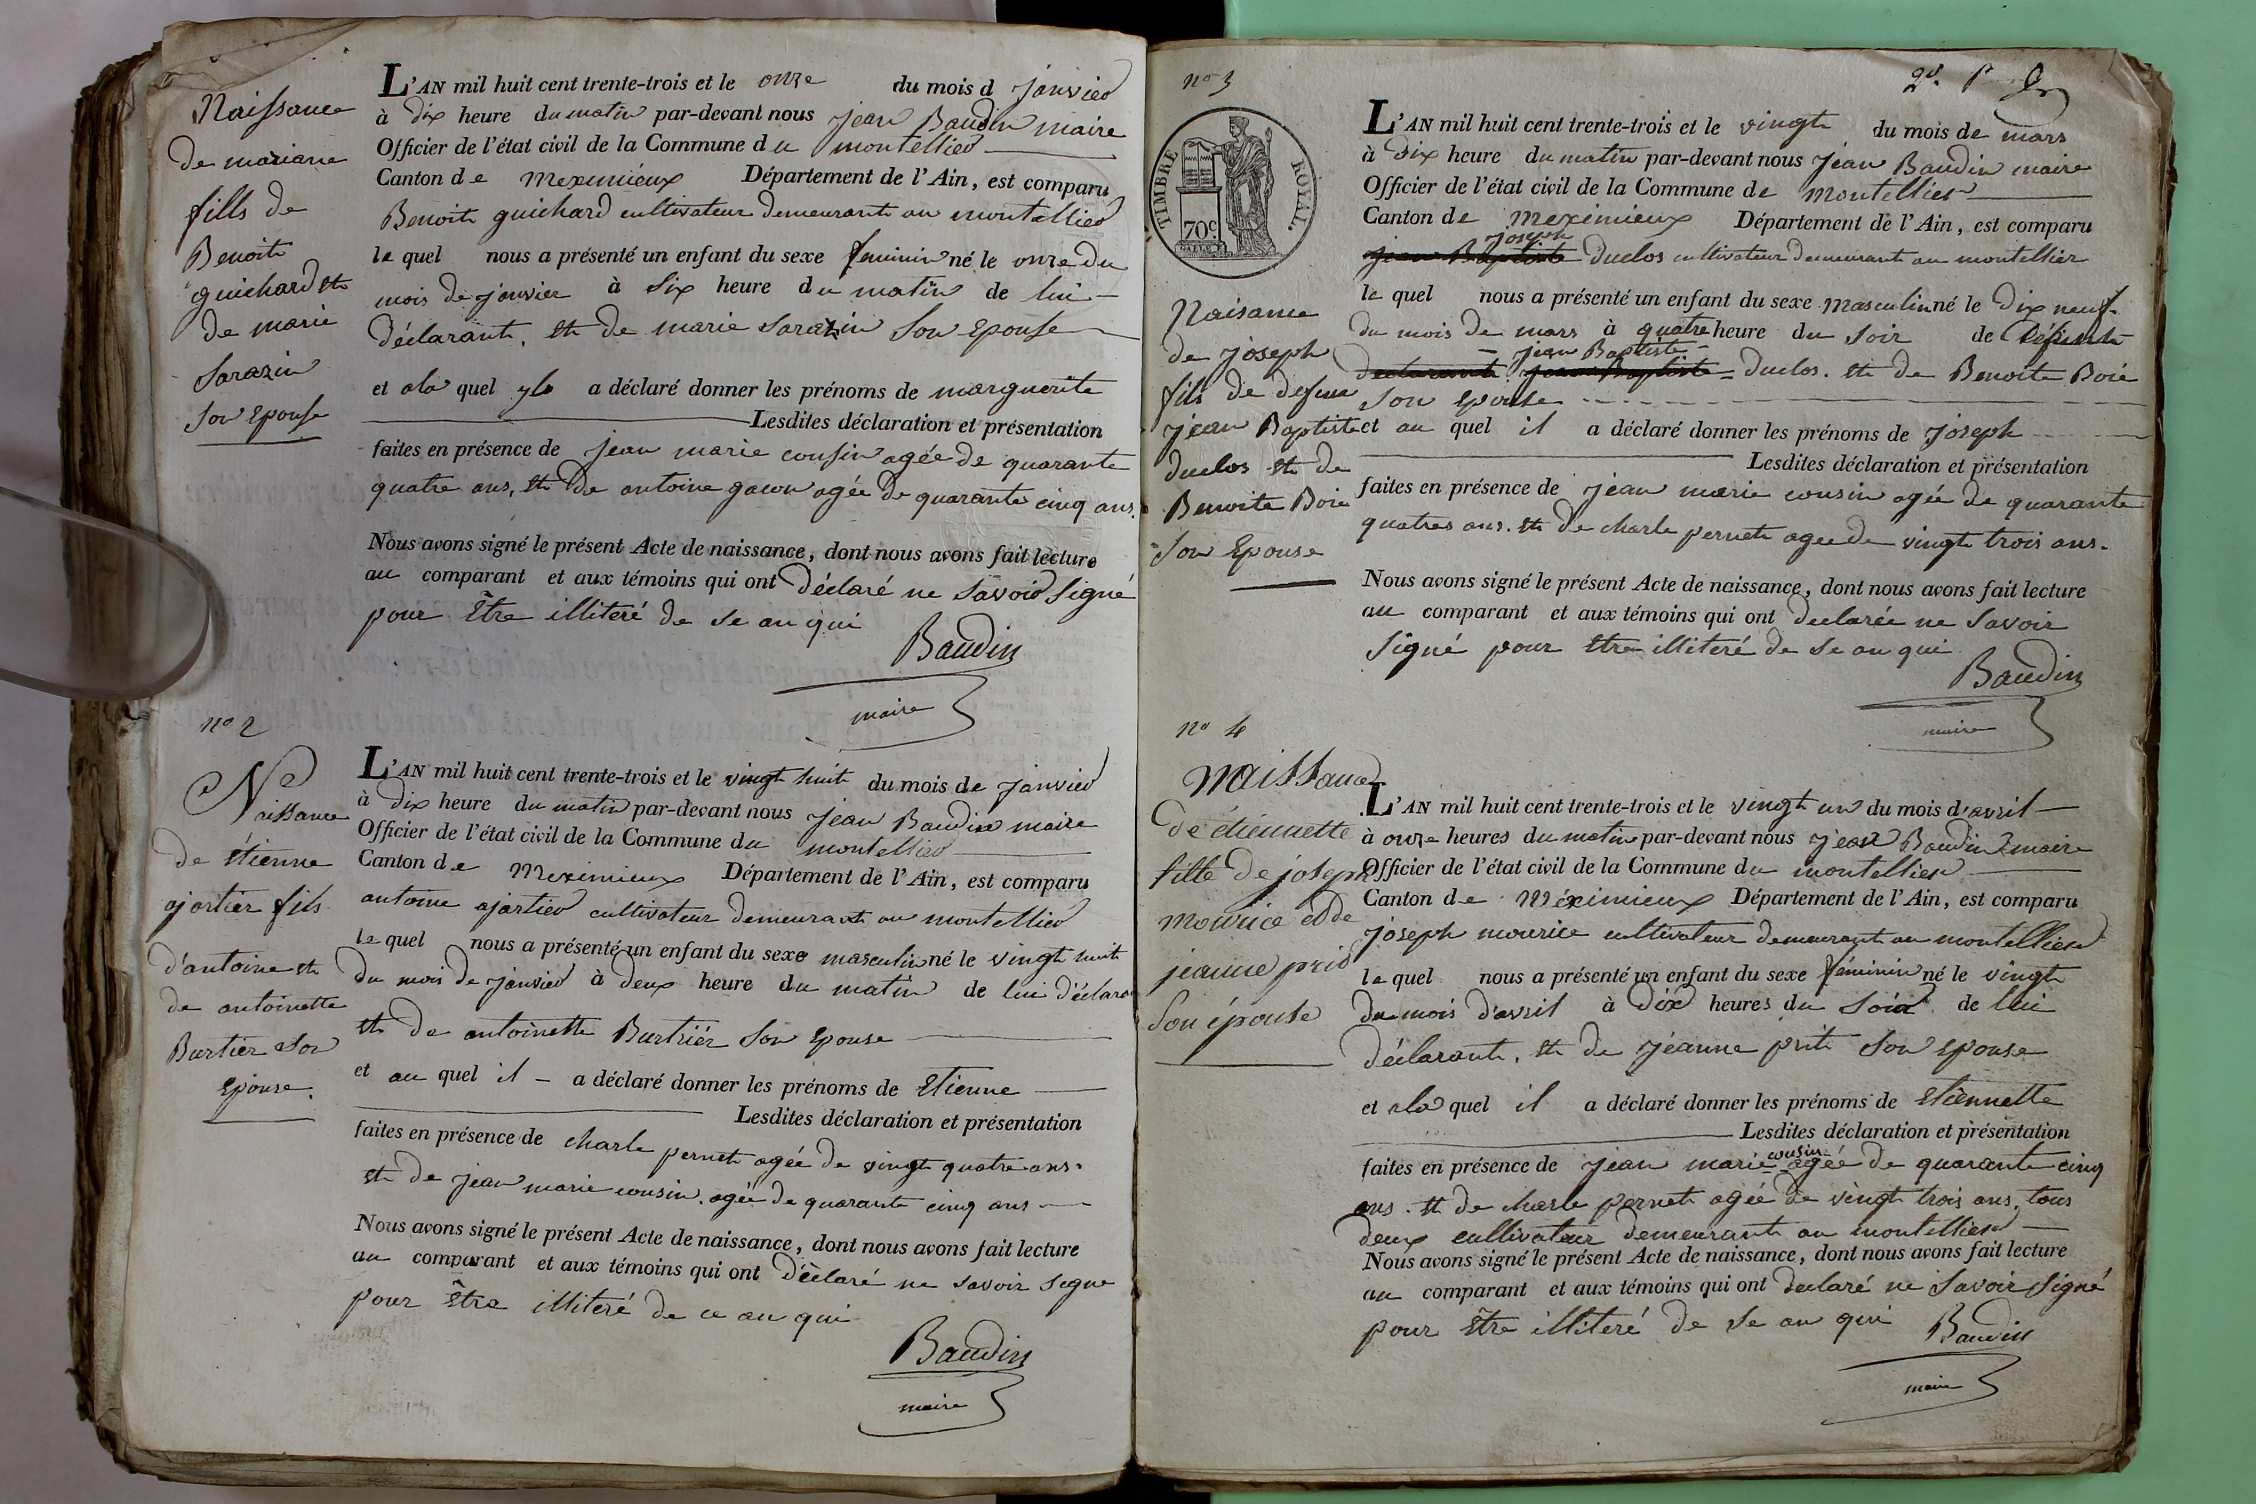 Naissance
de mariane
fills de
Benoit
guichard et
de marie
Sarazin
Son epouse
L'AN mil huit cent trente-trois et le onze du mois d janvier
à dix heure du matin par-devant nous jean Baudin maire
Officier de l'état civil de la Commune du montellier
Canton de meximieux Département de l'Ain, est comparu
Benoit guichard cultivateur demeurant au montellier
le quel nous a présenté un enfant du sexe feminin né le onze du
mois de janvier à six heure du matin de lui
déclarant. et de marie sarazin son epouse
et ala quel yl a déclaré donner les prénoms de marguerite
Lesdites déclaration et présentation
faites en présence de jean marie cousin agée de quarante
quatre ans, et de antoine gacon agée de quarante cinq ans.
Nous avons signé le présent Acte de naissance, dont nous avons fait lecture
au comparant et aux témoins qui ont déclaré ne savoir signé
pour être illiteré de se au qui
Baudin
maire
no 2
Naissance
de étienne
ajortier fils
d'antoine et
de antoinette
Burtier son
epouse.
L'AN mil huit cent trente-trois et le vingt huit du mois de janvier
à dix heure du matin par-devant nous jean Baudin maire
Officier de l'état civil de la Commune du montellier
Canton de meximieux Département de l'Ain, est comparu
antoine ajortier cultivateur demeurant au montellier
le quel nous a présenté un enfant du sexe masculin né le vingt huit
du mois de janvier à deux heure du matin de lui déclara
et de antoinette Burtier son epouse
et au quel il a déclaré donner les prénoms de étienne
Lesdites déclaration et présentation
faites en présence de charle pernet agée de vingt quatre ans.
et de jean marie cousin. agée de quarante cinq ans
Nous avons signé le présent Acte de naissance, dont nous avons fait lecture
au comparant et aux témoins qui ont déclaré ne savoir signe
pour être illiteré de ce au qui
Baudin
maire
no 3
2e.
TIMBRE ROYAL.
70c.
Naisance
de joseph
fils de defunt
jean Baptiste
duclos et de
Benoite Boie
son epouse
L'AN mil huit cent trente-trois et le vingt du mois de mars
à dix heure du matin par-devant nous jean Baudin maire
Officier de l'état civil de la Commune de montellier
Canton de meximieux Département de l'Ain, est comparu
joseph
jean Baptiste duclos cultivateur demeurant au montellier
le quel nous a présenté un enfant du sexe masculin né le dix neuf
du mois de mars à quatre heure du soir de défunt
jean Baptiste
declarant. jean Baptiste duclos. et de Benoite Boie
son epouse
et au quel il a déclaré donner les prénoms de joseph
Lesdites déclaration et présentation
faites en présence de jean marie cousin agée de quarante
quatres ans. et de charle pernet agee de vingt trois ans.
Nous avons signé le présent Acte de naissance, dont nous avons fait lecture
au comparant et aux témoins qui ont declarée ne savoir
signé pour etre illiteré de se au qui
Baudin
maire
no 4
naissance
de étiennette
fille de joseph
mourice et de
jeanne prid
son épouse
L'AN mil huit cent trente-trois et le vingt un du mois d'avril
à onze heures du matin par-devant nous jean Baudin maire
Officier de l'état civil de la Commune du montellier
Canton de méximieux Département de l'Ain, est comparu
joseph mourice cultivateur demeurant au montellier
le quel nous a présenté un enfant du sexe féminin né le vingt
du mois d'avril à dix heures du soir de lui
déclarant. et de jéanne prit son epouse
et ala quel il a déclaré donner les prénoms de étiennette
Lesdites déclaration et présentation
cousin
faites en présence de jean marie agée de quarante cinq
ans. et de charle pernet agée de vingt trois ans, tous
deux cultivateur demeurant au montellier
Nous avons signé le présent Acte de naissance, dont nous avons fait lecture
au comparant et aux témoins qui ont declaré ne savoir signé
pour être illiteré de se au qui
Baudin
maire